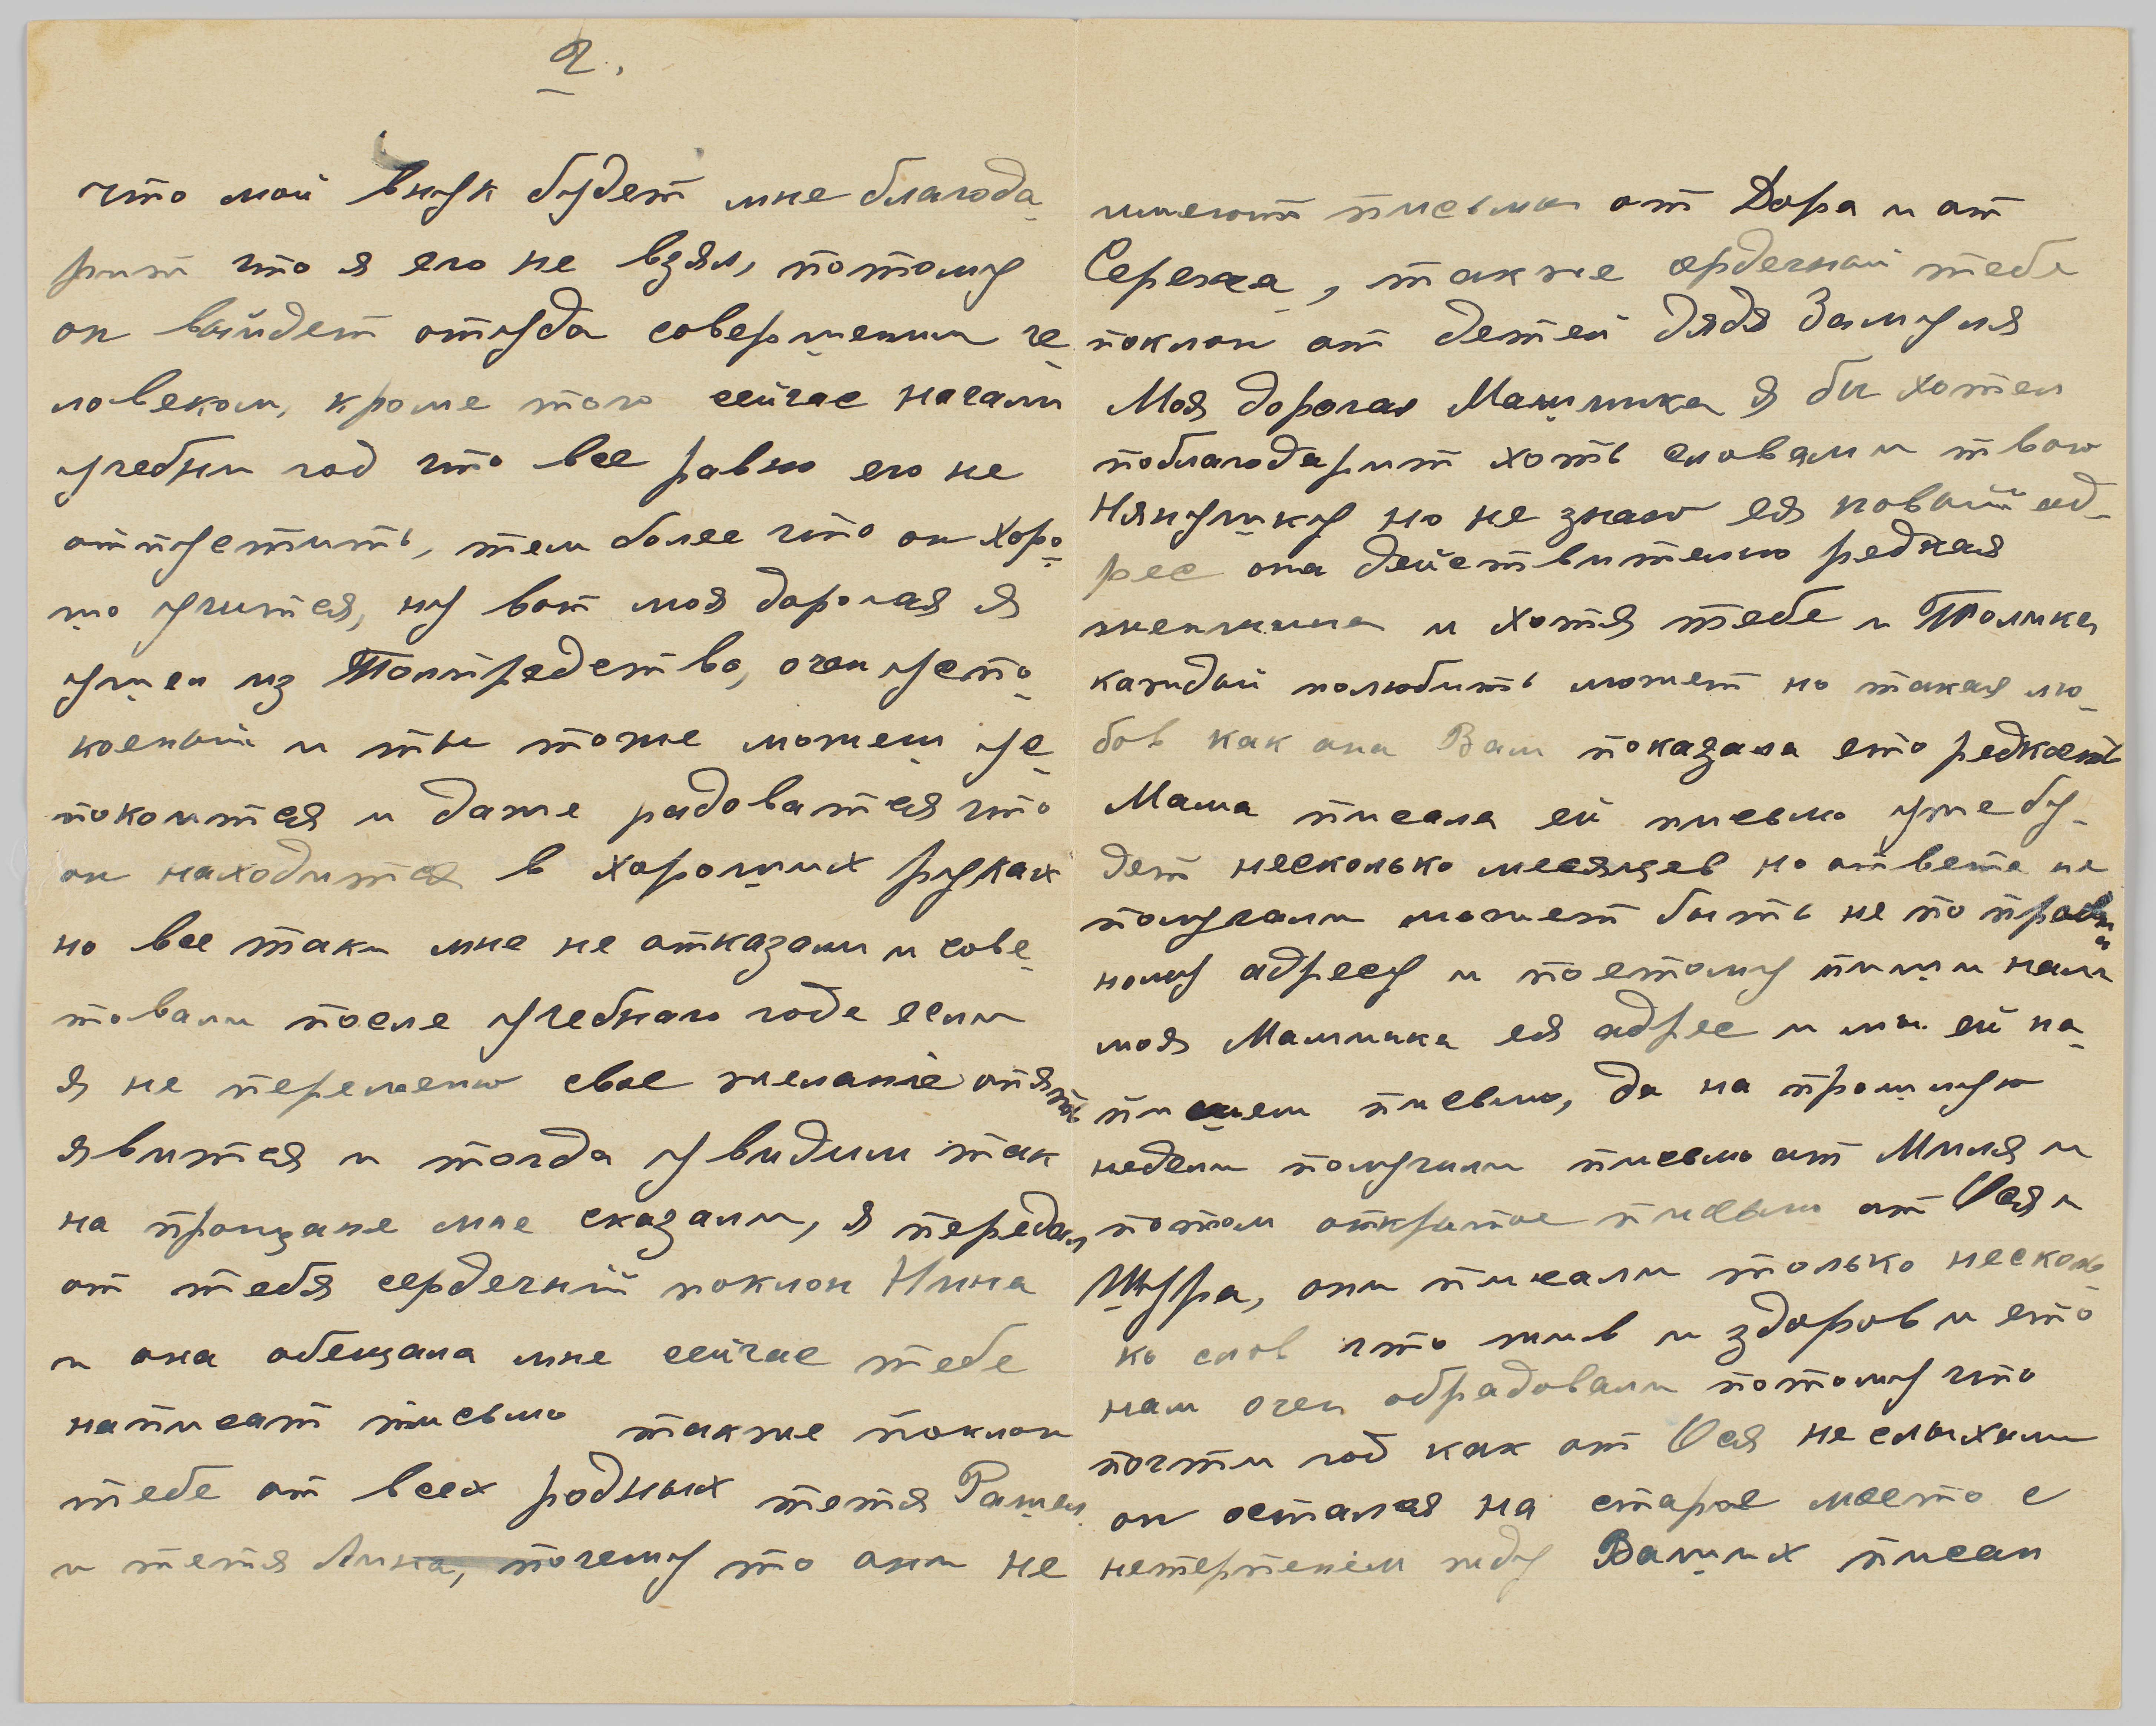 2.
что мой внук будет мне благода-
рит что я его не взял, потому
он выйдет оттуда совершеним че-
ловеком, кроме того сейчас начали
учебни год что все равно его не
отпустить, тем более что он хоро-
шо учится, ну вот моя дорогая я
ушел из Полпредство, очен успо-
коеный и ты тоже можеш ус-
покоится и даже радоватся что
он находится в хороших руках
но все таки мне не отказали и сове-
товали после учебнаго года если
я не переменю свое желаніе опять
явится и тогда увидим так
на прощане мне сказали, я передал
от тебя сердечний поклон Нина
и она обещала мне сейчас тебе
написат письмо также поклон
тебе от всех родных тетя Рашел
и тетя Лина, почему то они не
имеют письма от Дора и от
Сережа, также сердечный тебе
поклон от детей дядя Замуля
Моя дорогая Машинка я бы хотел
поблагодарит хоть словами твою
Нянушку но не знаю ея новый ад-
рес она действително редкая
женщина и хотя тебе и Толика
каждый полюбить может но такая лю-
бов как она Вам показала ето редкость
Мама писала ей письмо уже бу-
дет несколько месяцев но ответа не
получали может быть не по правил
ному адресу и поетому пиши нам
моя Машинка ея адрес и мы ей на-
пишем письмо, да на прошлую
недели получили письмо от Миля и
потом открытое письмо от Ося и
Шура, они писали только несколь-
ко слов что жив и здоров и ето
нам очен обрадовали потому что
почти год как от Ося не слыхали
он остался на старое место с
нетерпением жду Ваших писем